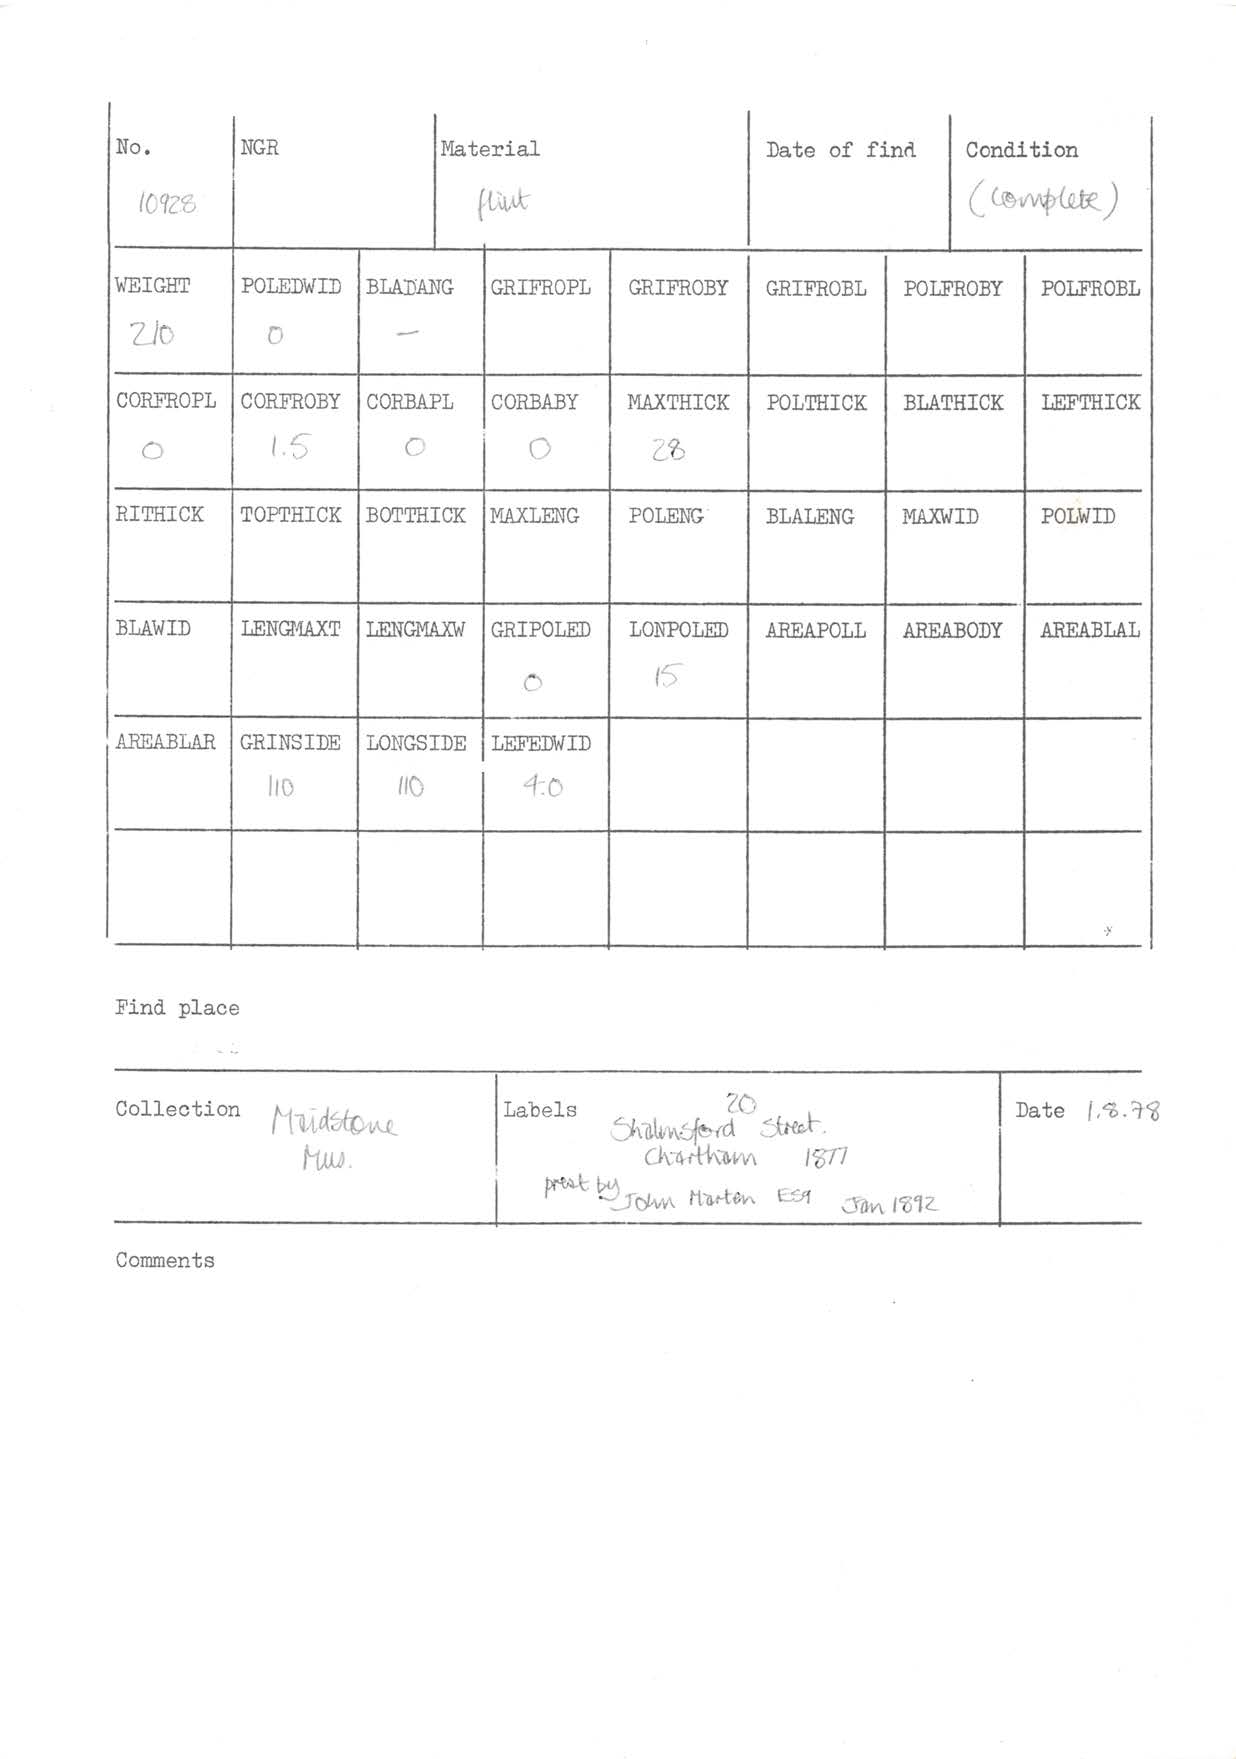 No. NGR Material Date of find Condition
10928 flint (complete)
WEIGHT POLEDWID BLADANG GRIFROPL GRIFROBY GRIFROBL POLFROBY POLFROBL
210 0 —
CORFROPL CORFROBY CORBAPL CORBABY MAXTHICK POLTHICK BLATHICK LEFTHICK
0 1.5 0 0 28
RITHICK TOPTHICK BOTTHICK MAXLENG POLENG BLALENG MAXWID POLWID
BLAWID LENGMAXT LENGMAXW GRIPOLED LONPOLED AREAPOLL AREABODY AREABLAL
0 15
AREABLAR GRINSIDE LONGSIDE LEFEDWID
110 110 4.0
Find place
Collection Maidstone Mus. Labels 20 Date 1.8.78
Shalmsford Street.
Chartham 1877
prest by John Marten ESq Jan 1892
Comments